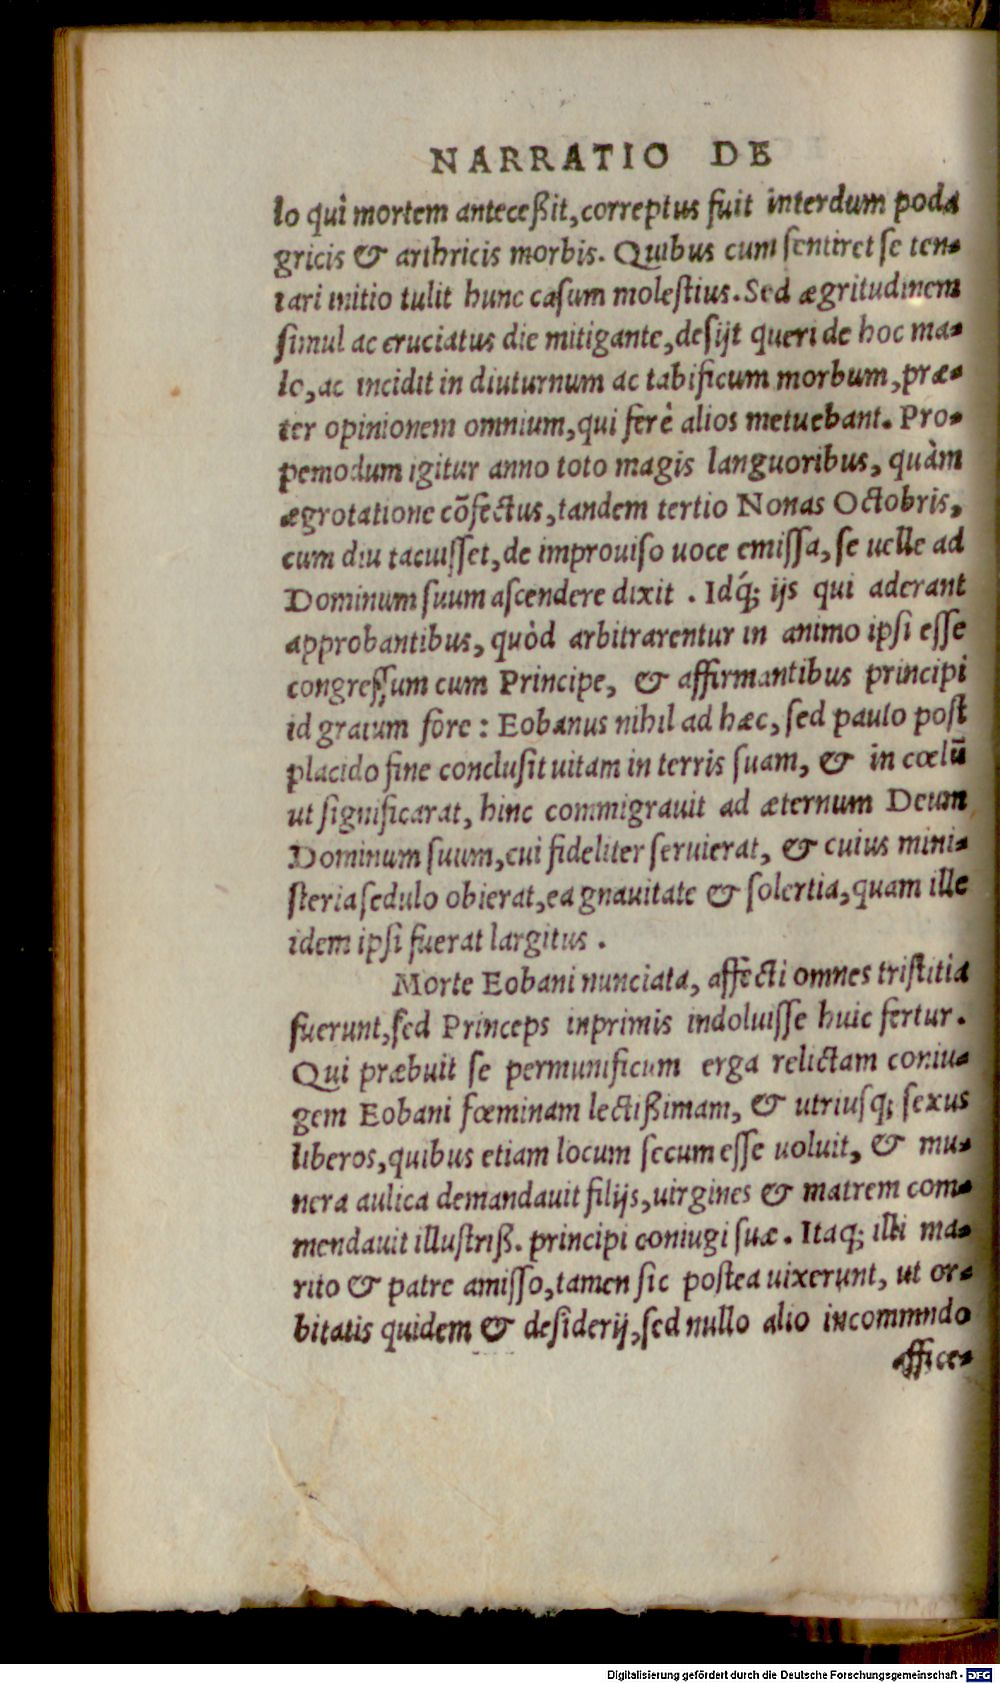 NARRATIO DE
lo qui mortem anteceßit, correptus fuit interdum poda
gricis & arthricis morbis. Quibus cum sentiret se ten-
tari initio tulit hunc casum molestius. Sed ægritudinem
simul ac cruciatus die mitigante, desijt queri de hoc ma-
lo, ac incidit in diuturnum ac tabificum morbum, præ-
ter opinionem omnium, qui ferè alios metuebant. Pro-
pemodum igitur anno toto magis languoribus, quàm
ægrotatione cõfectus, tandem tertio Nonas Octobris,
cum diu tacuisset, de improuiso uoce emissa, se uelle ad
Dominum suum ascendere dixit . Idq́; ijs qui aderant
approbantibus, quòd arbitrarentur in animo ipsi esse
congressum cum Principe, & affirmantibus principi
id gratum fore : Eobanus nihil ad hæc, sed paulo post
placido fine conclusit uitam in terris suam, & in cœlũ
ut significarat, hinc commigrauit ad æternum Deum
Dominum suum, cui fideliter seruierat, & cuius mini-
steria sedulo obierat, ea gnauitate & solertia, quam ille
idem ipsi fuerat largitus .
Morte Eobani nunciata, affecti omnes tristitia
fuerunt, sed Princeps inprimis indoluisse huic fertur.
Qui præbuit se permunificum erga relictam coniu-
gem Eobani fœminam lectißimam, & utriusq; sexus
liberos, quibus etiam locum secum esse uoluit, & mu-
nera aulica demandauit filijs, uirgines & matrem com-
mendauit illustriß. principi coniugi suæ . Itaq; illi ma-
rito & patre amisso, tamen sic postea uixerunt, ut or-
bitatis quidem & desiderij, sed nullo alio incommndo
affice-
Digitalisierung gefördert durch die Deutsche Forschungsgemeinschaft - DFG